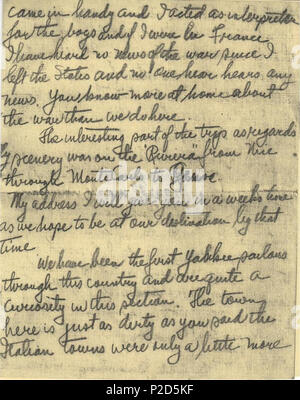 came in handy and I acted as interpreter
for the boys and if I were in France
I have heard no news of the war since I
left the States and no one hear hears any
news. You know more at home about
the war than we do here.
The interesting part of the trip as regards
scenery was on the "Riviera" from Nice
through Monte Carlo to
My address I will give you in a weeks time
as we hope to be at our destination by that
time
We have been the first Yankee
through this country and are quite a
curiosity in this section. The town
here is just as dirty as you said the
Italian towns were only a little more
alamy
Image ID: P2D5KF
www.alamy.com